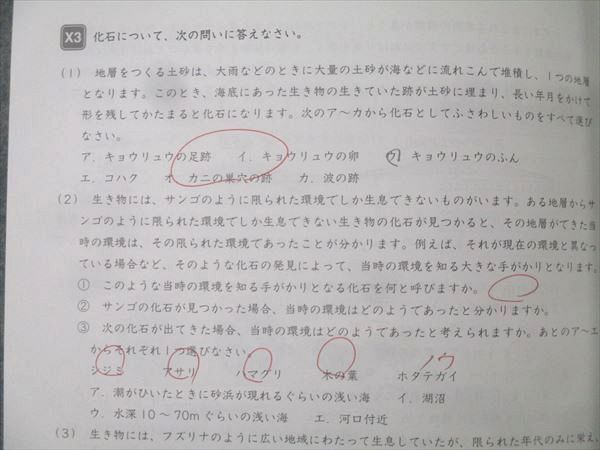 X3 化石について、次の問いに答えなさい。
(1) 地層をつくる土砂は、大雨などのときに大量の土砂が海などに流れこんで堆積し、1つの地層
となります。このとき、海底にあった生き物の生きていた跡が土砂に埋まり、長い年月をかけて
形を残してかたまると化石になります。次のア〜カから化石としてふさわしいものをすべて選び
なさい。
ア．キョウリュウの足跡 イ．キョウリュウの卵 ウ．キョウリュウのふん
エ．コハク オ．カニの巣穴の跡 カ．波の跡
(2) 生き物には、サンゴのように限られた環境でしか生息できないものがいます。ある地層からサ
ンゴのように限られた環境でしか生息できない生き物の化石が見つかると、その地層ができた当
時の環境は、その限られた環境であったことが分かります。例えば、それが現在の環境と異なっ
ている場合など、そのような化石の発見によって、当時の環境を知る大きな手がかりとなります。
① このような当時の環境を知る手がかりとなる化石を何と呼びますか。
② サンゴの化石が見つかった場合、当時の環境はどのようであったと分かりますか。
③ 次の化石が出てきた場合、当時の環境はどのようであったと考えられますか。あとのア〜エ
からそれぞれ1つ選びなさい。
ウ
シジミ アサリ ハマグリ 木の葉 ホタテガイ
ア．潮がひいたときに砂浜が現れるぐらいの浅い海 イ．湖沼
ウ．水深10〜70mぐらいの浅い海 エ．河口付近
(3) 生き物には、フズリナのように広い地域にわたって生息していたが、限られた年代のみに栄え、